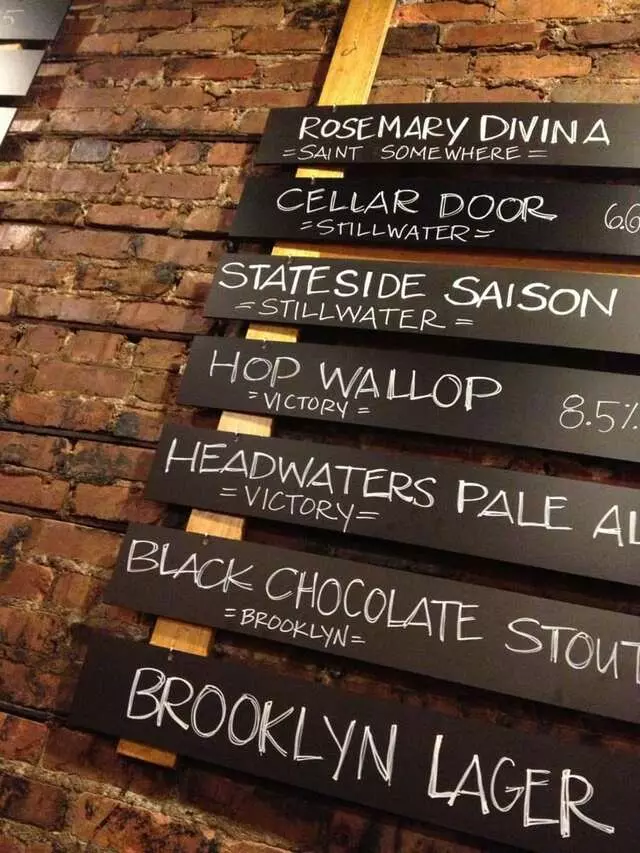 5
ROSEMARY DIVINA
=SAINT SOMEWHERE=
CELLAR DOOR 6.6
=STILLWATER=
STATESIDE SAISON
=STILLWATER=
HOP WALLOP 8.5%
=VICTORY=
HEADWATERS PALE AL
=VICTORY=
BLACK CHOCOLATE STOUT
=BROOKLYN=
BROOKLYN LAGER